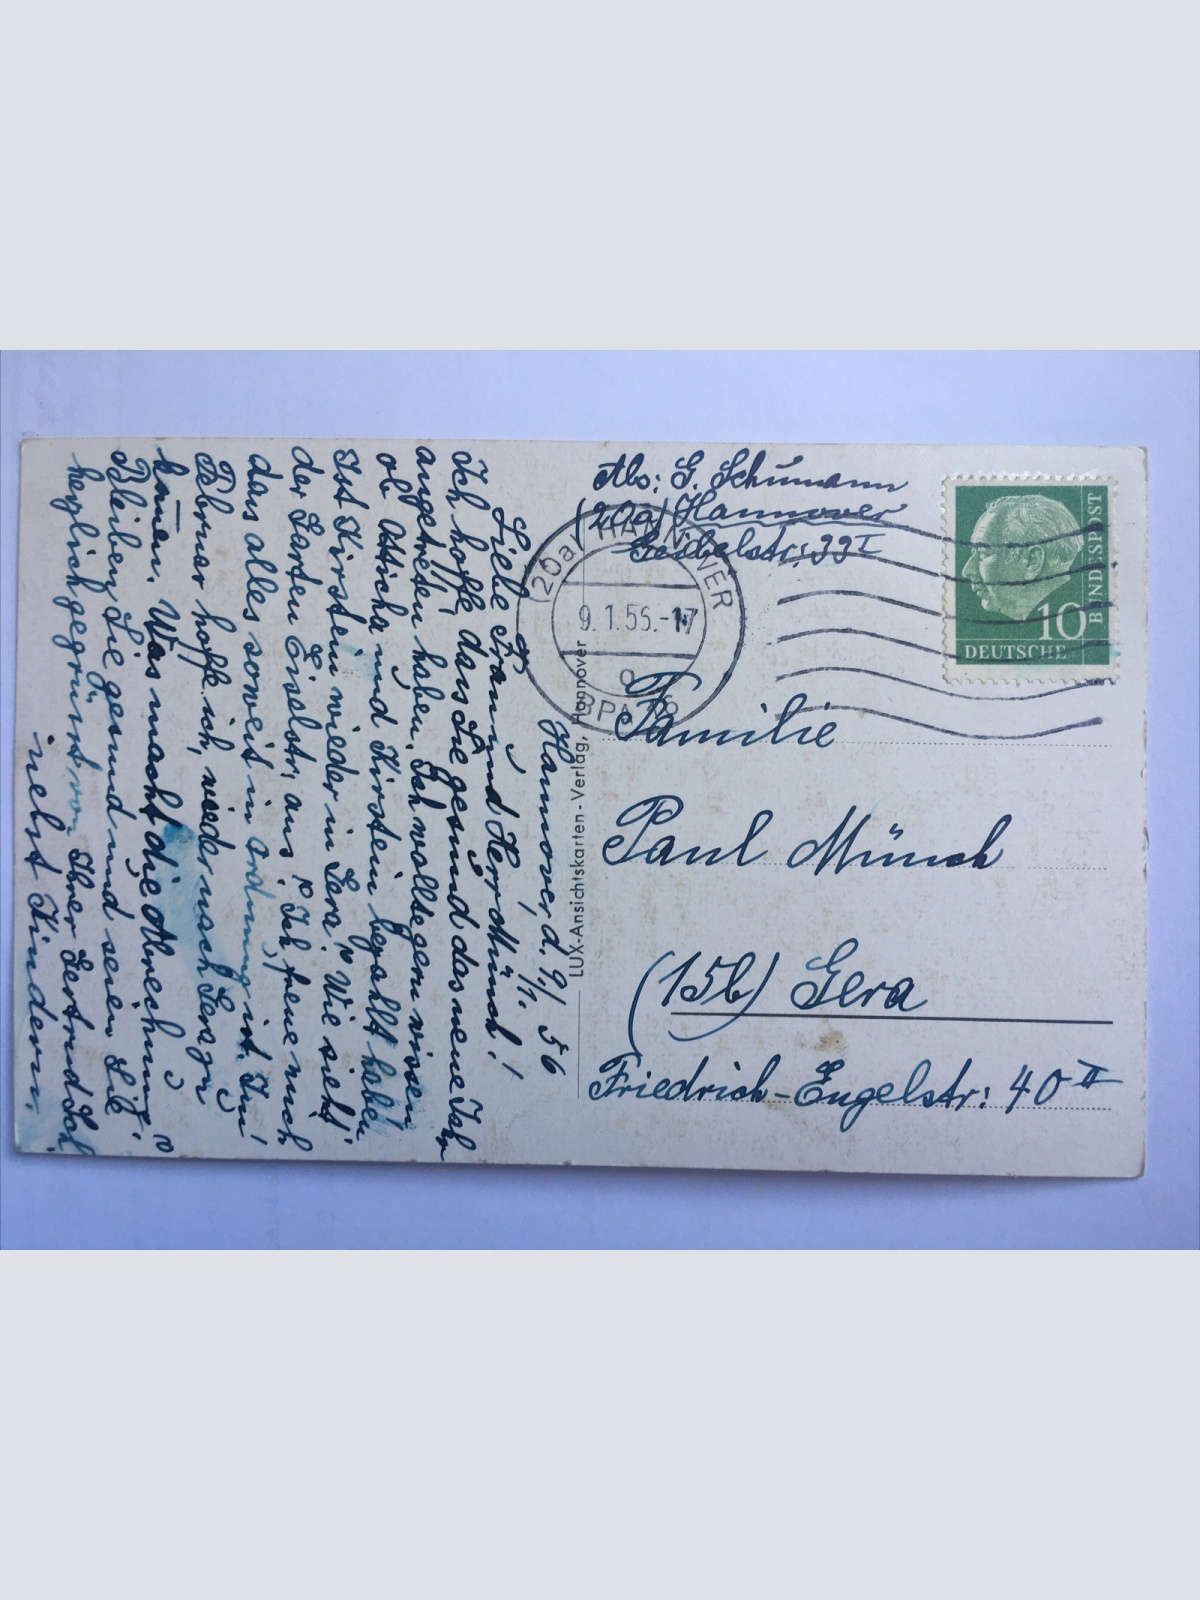 Hannover, d. 9./1. 56
Liebe Frau und Herr Münch!
Ich hoffe dass Sie gesund das neue Jahr
angetreten haben. Ich wollte gern wissen
ob und Kirstein bezahlt haben
Ist Kirstein wieder in Gera? Wie sieht
der Garten Eisslstr. aus? Ich freue mich
das alles soweit in ordnung ist. Im
Februar hoffe ich, wieder nach Gera zu
kom̄en. Was macht die Abrechnung?
Bleiben Sie gesund und seien Sie
herzlich gegrüsst von Ihrer Gertrud Sch
nebst Kindern.
Abs: G. Schumann
(20a) Hannover
Geibelstr: 99 I
(20a) HANNOVER
9.1.56.-17
o
BPA
DEUTSCHE BUNDESPOST
10
Familie
Paul Münch
(15b) Gera
Friedrich-Engelstr: 40 II
LUX-Ansichtskarten-Verlag, Hannover